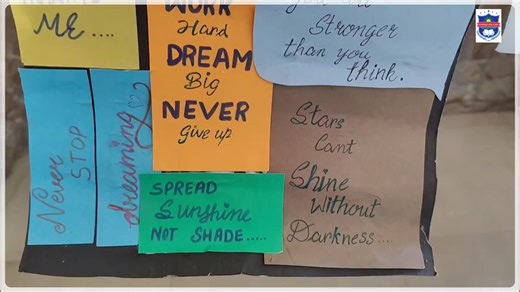 ME....
WORK
Hand
DREAM
Big
NEVER
Give up
Stronger
than you
think.
Never
STOP
dreaming
SPREAD
Sunshine
NOT SHADE.....
Stars
Cant
Shine
Without
Darkness....